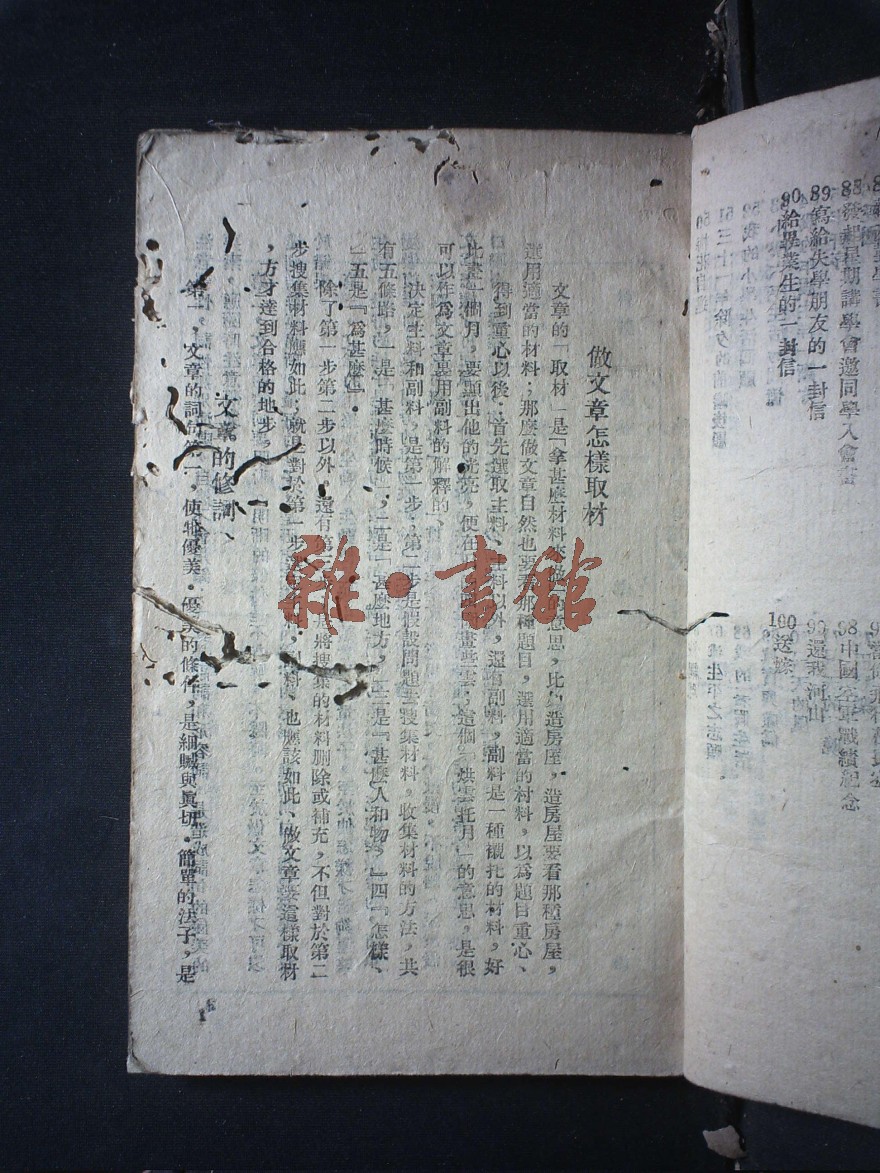 做文章怎樣取材
文章的「取材」是「拿甚麽材料來的意思，比造房屋，造房屋要看那種房屋，
選用適當的材料；那麽做文章自然也要看那種題目，選用適當的材料，以爲題目重心、
得到重心以後：首先選取主料、主料以外，還有副料，副料是一種襯托的材料，好
比畫一個月，要顯出他的光亮，便在畫些雲；這個「烘雲托月」的意思，是很
可以作爲文章裏用副料的解釋的、
決定主料和副料，是第一步，第二步是假設問題去搜集材料。收集材料的方法，共
有五條路，一是「甚麽時候」，二是「甚麽地方，三是「甚麽人和物，」四「怎樣、
」五是「爲甚麽」．
除了第一步第二步以外，還有第三將搜集的材料删除或補充，不但對於第二
步搜集材料應如此，就是對於第一步料、也應該如此、做文章要這樣取材
，方才達到合格的地步，
文章的修詞、
第一，文章的詞句第一，使牠優美．優美的條件，是細膩與眞切．簡單的法子，是
雜·書館
發起星期講學會邀同學入會書
89 寫給失學朋友的一封信
90 給畢業生的一封信
98 中國空軍戰績紀念
99 還我河山
100 送嫁